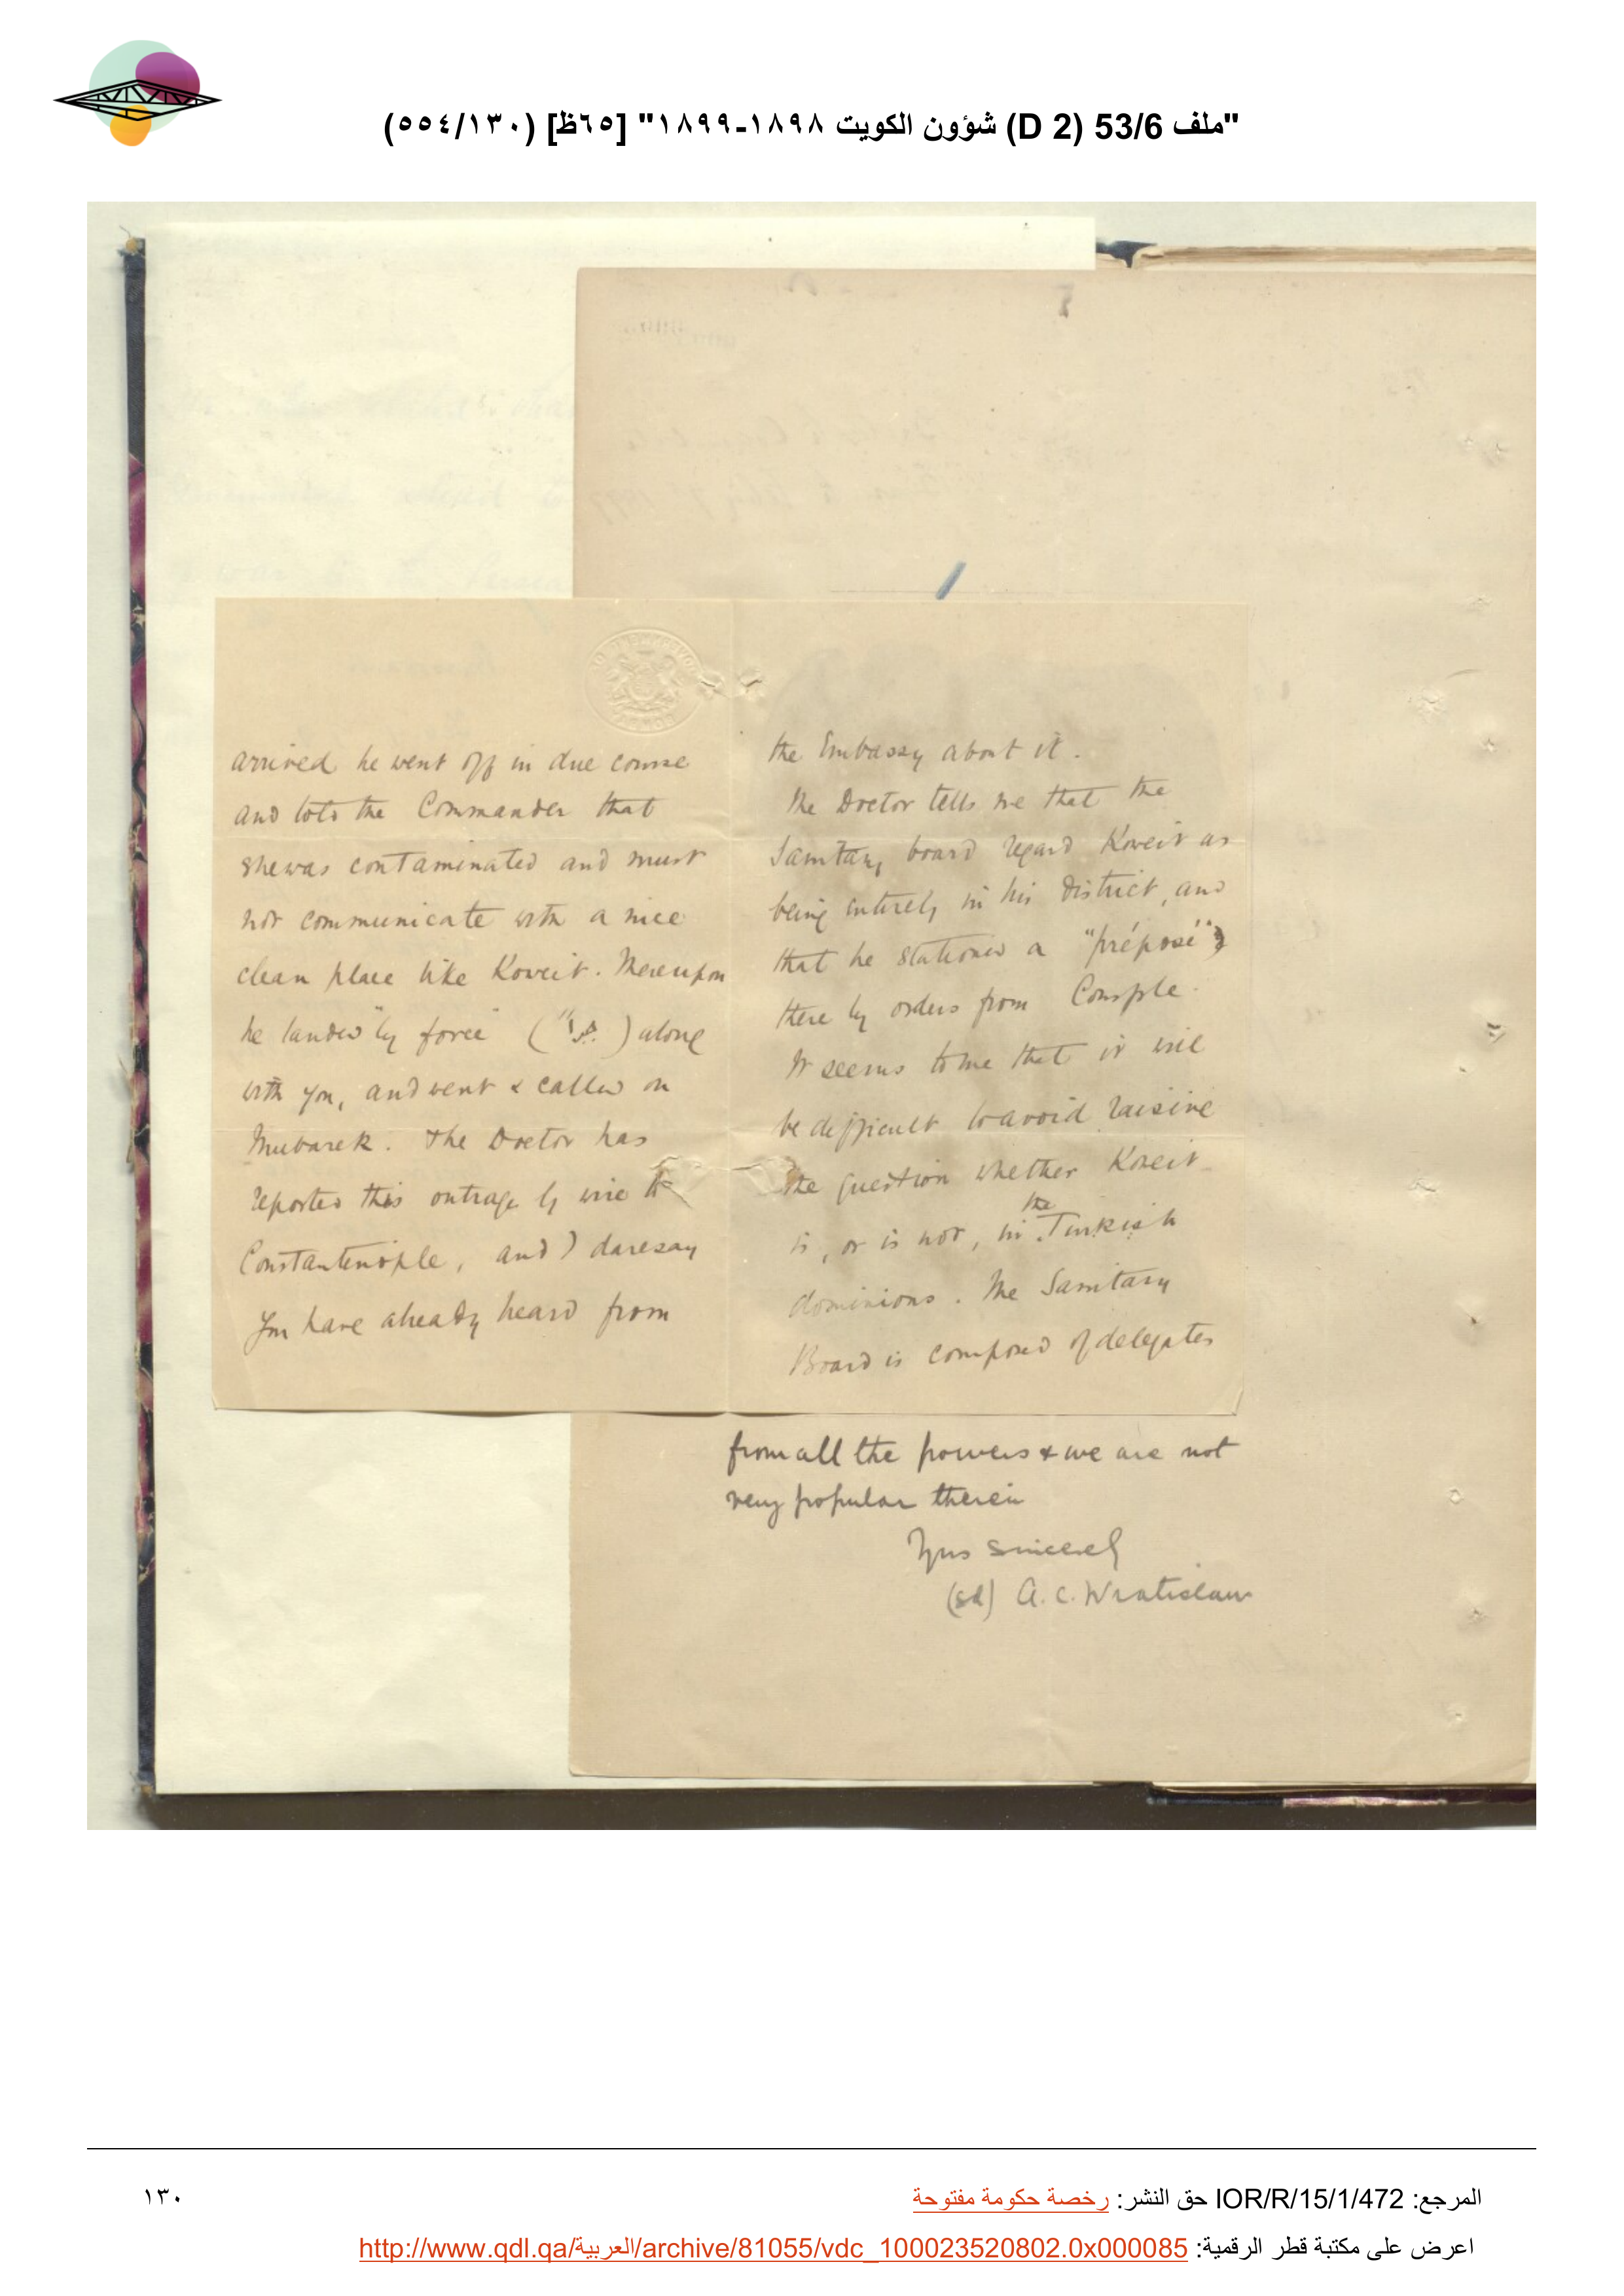 "ملف 53/6 (D 2) شؤون الكويت ١٨٩٨-١٨٩٩" [٦٥ظ] (١٣٠/٥٥٤)
arrived he went off in due course
and told the Commander that
she was contaminated and must
not communicate with a nice
clean place like Koweit. Thereupon
he landed "by force" ( ) along
with you, and went & called on
Mubarek. The Doctor has
reported this outrage by wire to
Constantinople, and I daresay
you have already heard from
the Embassy about it.
The Doctor tells me that the
Sanitary board regard Koweit as
being entirely in his district, and
that he stationed a "préposé"
there by orders from Consple.
It seems to me that it will
be difficult to avoid raising
the question whether Koweit
is, or is not, in the Turkish
dominions. The Sanitary
Board is composed of delegates
from all the powers & we are not
very popular therein
Yrs sincerely
(sd) A. C. Wratislaw
المرجع: IOR/R/15/1/472 حق النشر: رخصة حكومة مفتوحة
١٣٠
اعرض على مكتبة قطر الرقمية: http://www.qdl.qa/العربية/archive/81055/vdc_100023520802.0x000085